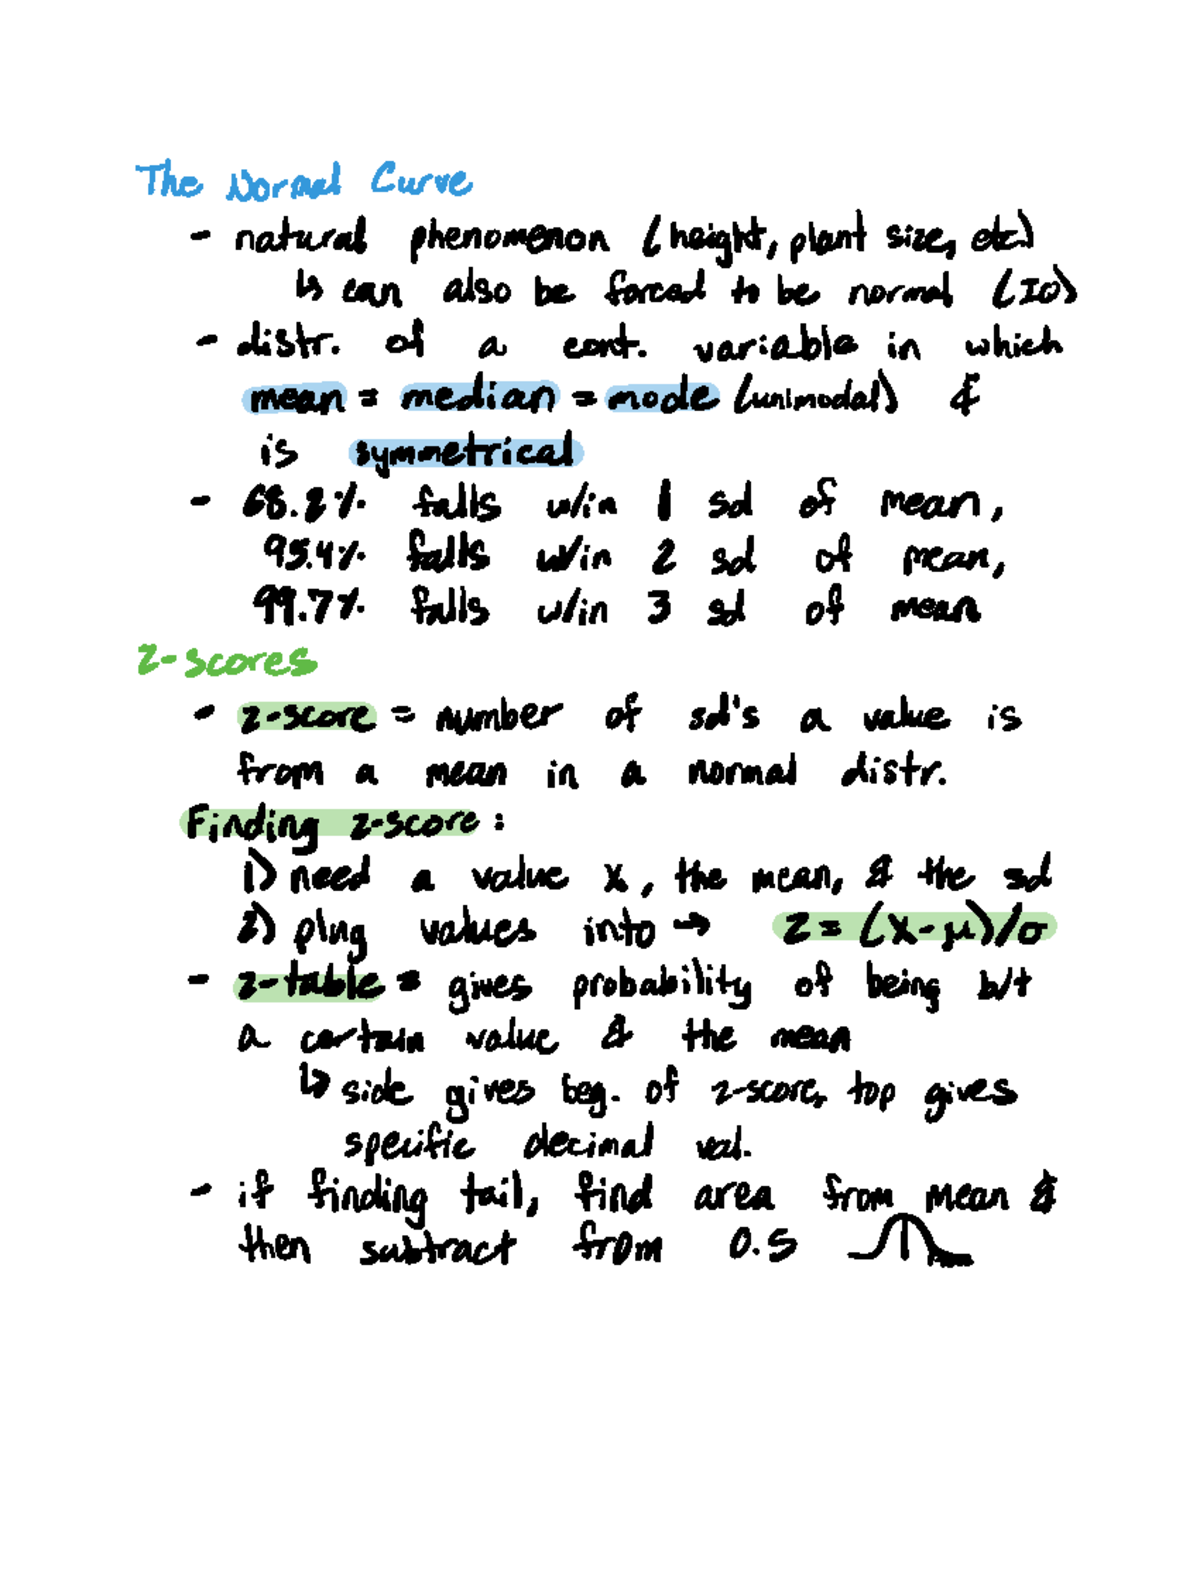 The Normal Curve
- natural phenomenon (height, plant size, etc.)
↳ can also be forced to be normal (IQ)
- distr. of a cont. variable in which
mean = median = mode (unimodal) &
is symmetrical
- 68.2% falls w/in 1 sd of mean,
95.4% falls w/in 2 sd of mean,
99.7% falls w/in 3 sd of mean
z-scores
- z-score = number of sd's a value is
from a mean in a normal distr.
Finding z-score:
1) need a value x, the mean, & the sd
2) plug values into → z = (x-μ)/σ
- z-table = gives probability of being b/t
a certain value & the mean
↳ side gives beg. of z-score, top gives
specific decimal val.
- if finding tail, find area from mean &
then subtract from 0.5